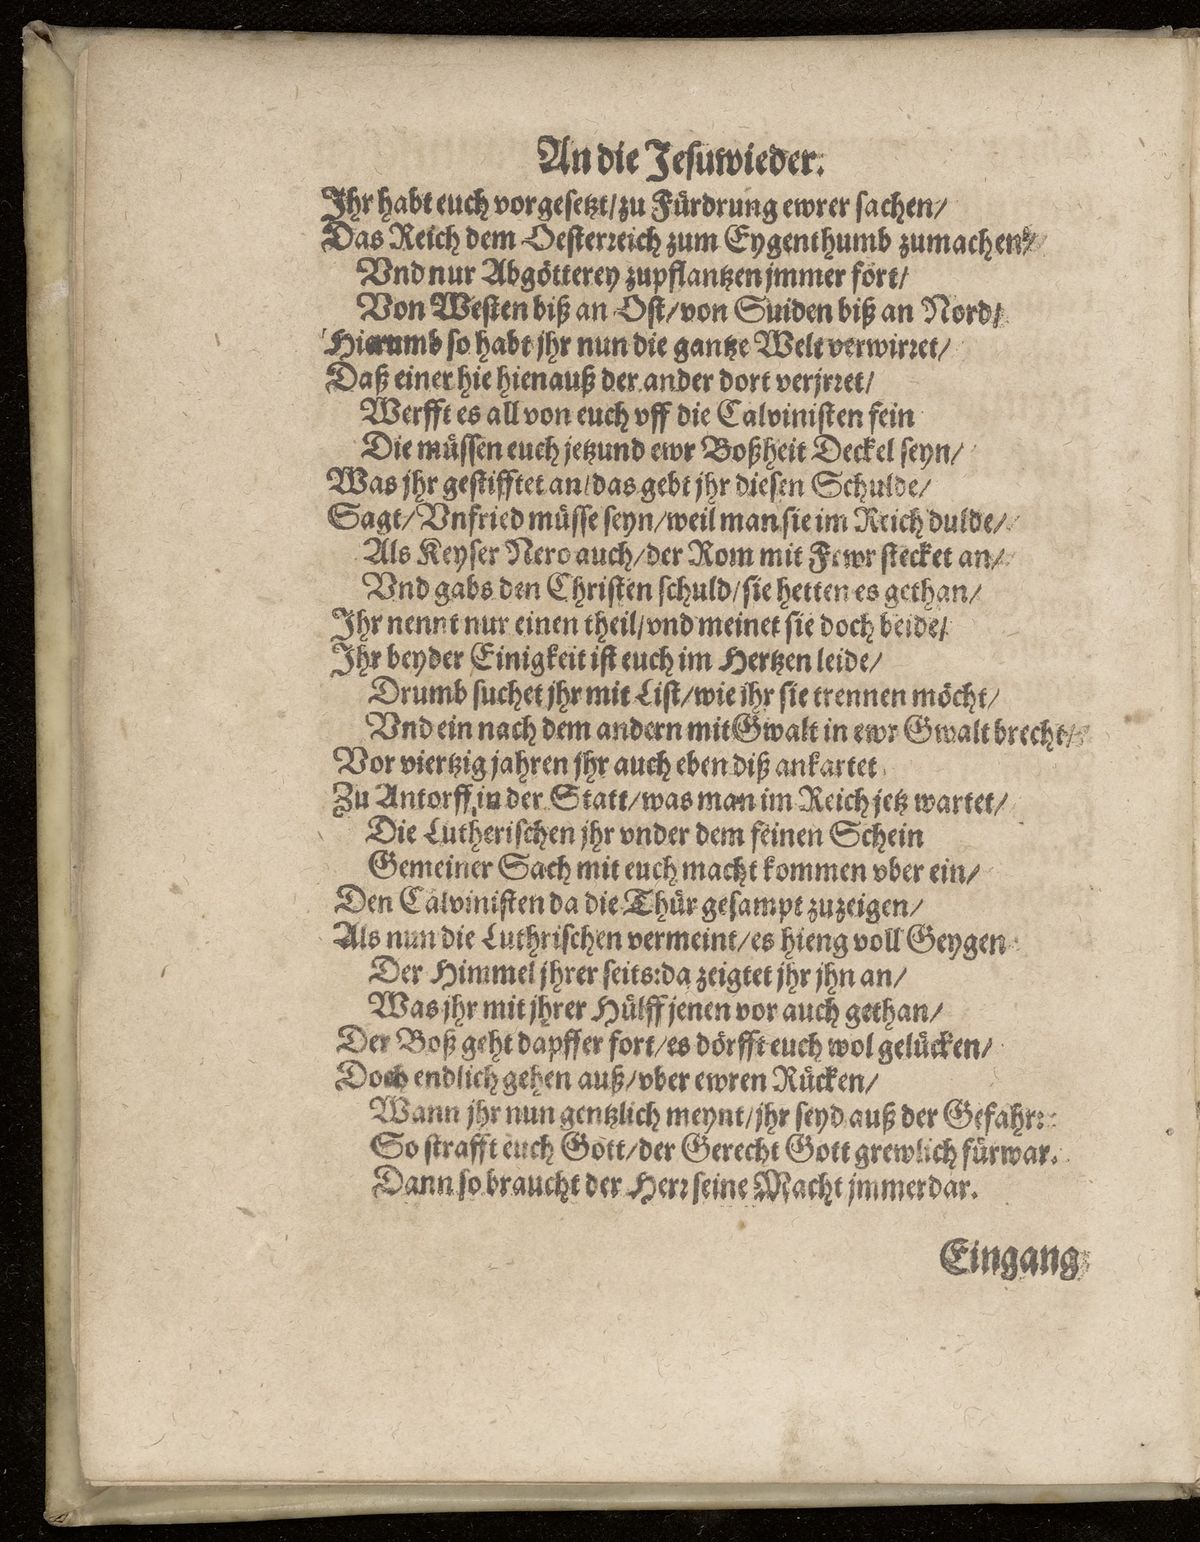 An die Jesuwieder.
Ihr habt euch vorgesetzt/zu Fürdrung ewrer sachen/
Das Reich dem Oesterreich zum Eygenthumb zumachen/
Vnd nur Abgötterey zupflantzen jmmer fort/
Von Westen biß an Ost/von Suiden biß an Nord/
Hierumb so habt jhr nun die gantze Welt verwirret/
Daß einer hie hienauß der ander dort verjrret/
Werfft es all von euch vff die Calvinisten fein
Die müssen euch jetzund ewr Boßheit Deckel seyn/
Was jhr gestifftet an/das gebt jhr diesen Schulde/
Sagt/Vnfried müsse seyn/weil man sie im Reich dulde/
Als Keyser Nero auch/der Rom mit Fewr stecket an/
Vnd gabs den Christen schuld/sie hetten es gethan/
Ihr nennt nur einen theil/vnd meinet sie doch beide/
Ihr beyder Einigkeit ist euch im Hertzen leide/
Drumb suchet jhr mit List/wie ihr sie trennen möcht/
Vnd ein nach dem andern mit Gwalt in ewr Gwalt brecht/
Vor viertzig jahren jhr auch eben diß ankartet
Zu Antorff in der Statt/was man im Reich jetz wartet/
Die Lutherischen jhr vnder dem feinen Schein
Gemeiner Sach mit euch macht kommen vber ein/
Den Calvinisten da die Thür gesampt zuzeigen/
Als nun die Luthrischen vermeint/es hieng voll Geygen
Der Himmel jhrer seits:da zeigtet jhr jhn an/
Was jhr mit jhrer Hülff jenen vor auch gethan/
Der Boß geht dapffer fort/es dörfft euch wol gelücken/
Doch endlich gehen auß/vber ewren Rücken/
Wann jhr nun gentzlich meynt/jhr seyd auß der Gefahr:
So strafft euch Gott/der Gerecht Gott grewlich fürwar.
Dann so braucht der Herr seine Macht jmmerdar.
Eingang